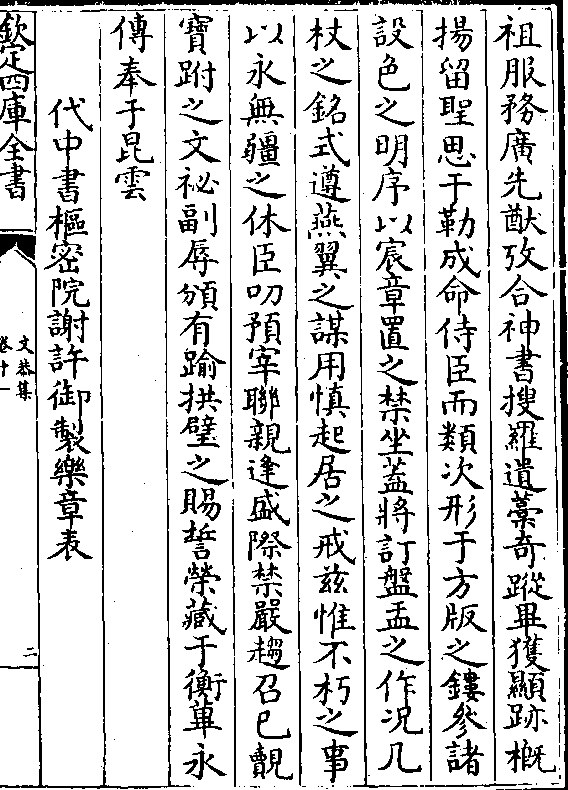 祖服務廣先猷攷合神書搜羅遺藁奇蹤畢獲顯跡槪
揚留聖思于勒成命侍臣而類次形于方版之鏤參諸
設色之明序以宸章置之禁坐蓋將訂盤盂之作况几
杖之銘式遵燕翼之謀用慎起居之戒兹惟不朽之事
以永無疆之休臣叨預宰聯親逢盛際禁嚴趨召已覿
寶跗之文祕副辱頒有踰拱璧之賜誓榮藏于衡蓽永
傳奉于昆雲
代中書樞密院謝許御製樂章表
欽定四庫全書
文恭集
卷十一
二